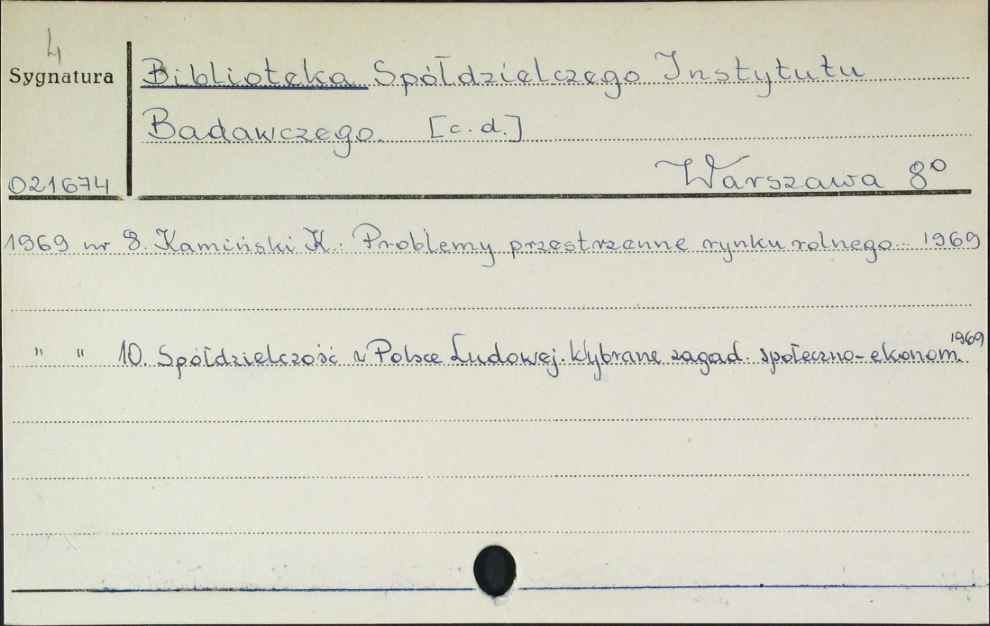 4
Sygnatura
Biblioteka Spółdzielczego Instytutu
Badawczego. [c.d.]
021674
Warszawa 8°
1969 nr 8. Kamiński K.: Problemy przestrzenne rynku rolnego. 1969
" " 10. Spółdzielczość w Polsce Ludowej. Wybrane zagad. społeczno-ekonom. 1969